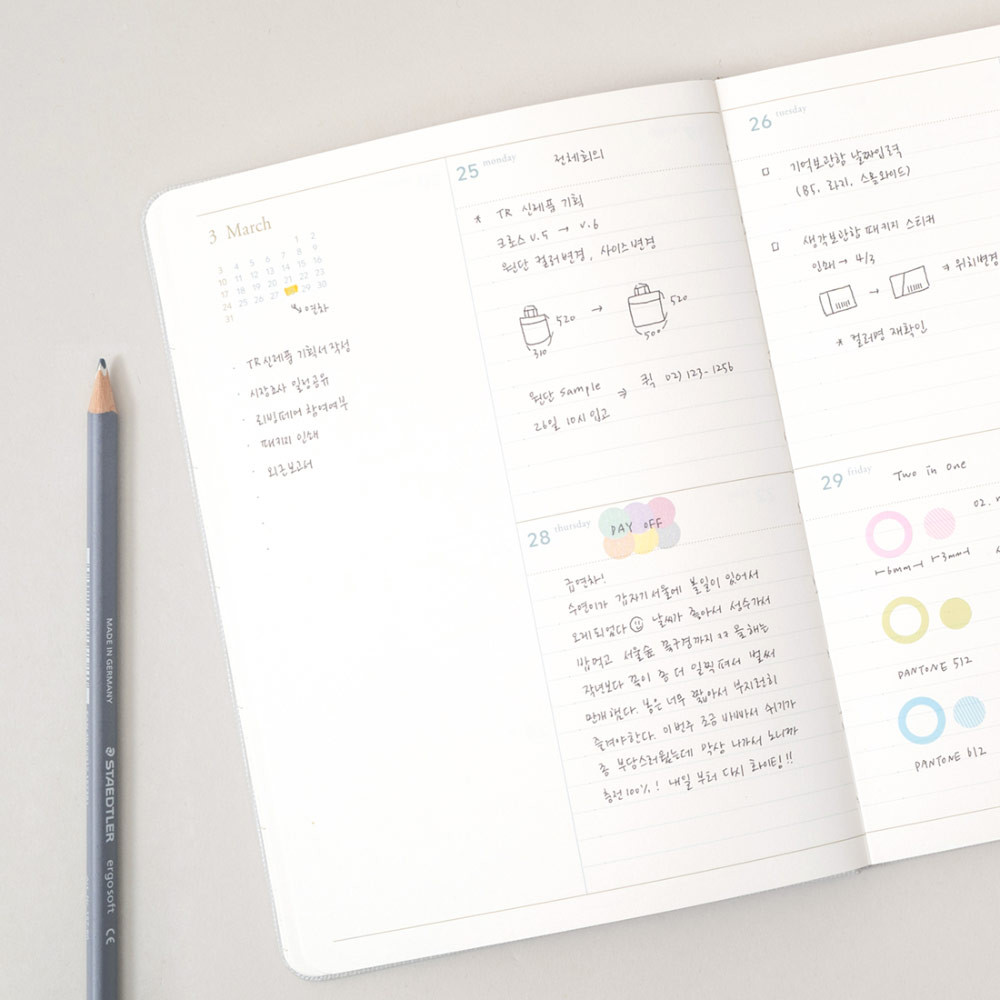 3 March
1 2
3 4 5 6 7 8 9
10 11 12 13 14 15 16
17 18 19 20 21 22 23
24 25 26 27 29 30
31
연차
· TR 신제품 기획서 작성
· 시장조사 일정공유
· 리빙페어 참여여부
· 패키지 인쇄
· 외근보고서
25 monday 전체회의
* TR 신제품 기획
크로스 v.5 → v.6
원단 컬러변경, 사이즈변경
520 → 520
310 500
원단 sample ⇒ 퀵 02) 123-1256
26일 10시 입고
28 thursday DAY OFF
급연차!
수연이가 갑자기 서울에 볼일이 있어서
오게되었다 날씨가 좋아서 성수가서
밥먹고 서울숲 꽃구경까지 ㅋㅋ 올해는
작년보다 꽃이 좀 더 일찍 펴서 벌써
만개했다. 봄은 너무 짧아서 부지런히
즐겨야한다. 이번주 조금 바빠서 쉬기가
좀 부담스러웠는데 막상 나가서 노니까
충전100%! 내일 부터 다시 화이팅!!
26 tuesday
□ 기억보관함 날짜입력
(B5, 라지, 스몰와이드)
□ 생각보관함 패키지 스티커
인쇄 → 4/3
→ * 위치변경
* 컬러명 재확인
29 friday Two in One
02.
6mm 3mm
PANTONE 512
PANTONE 612
MADE IN GERMANY
STAEDTLER ergosoft CE